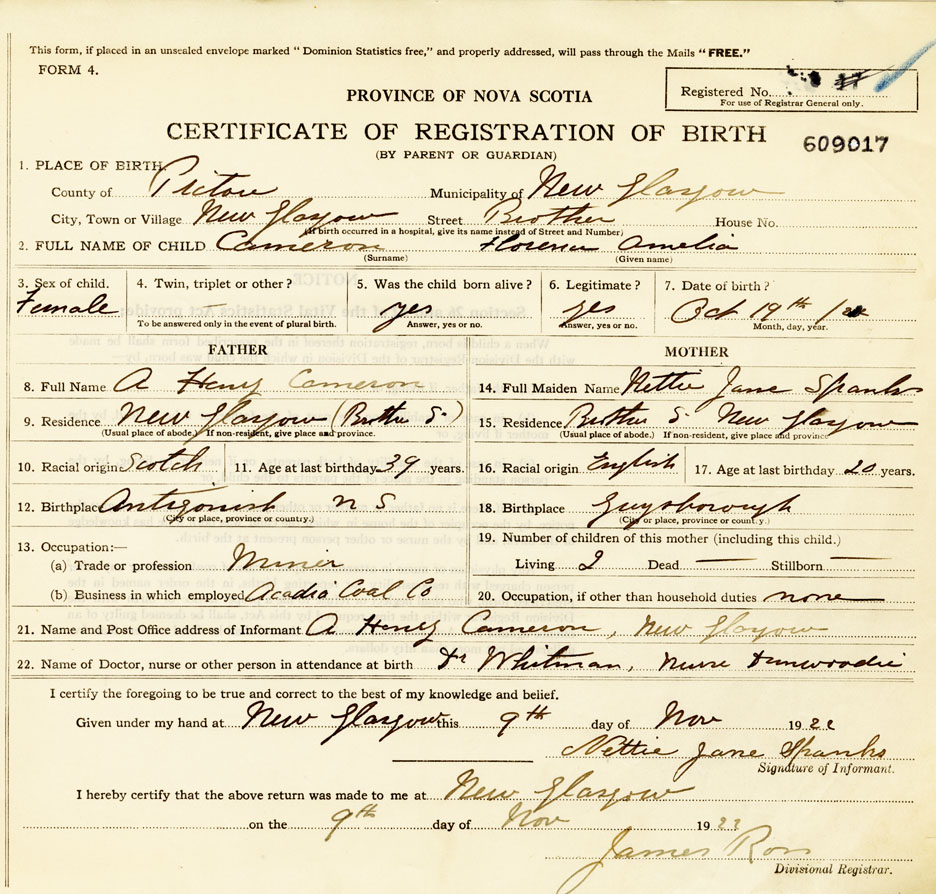 This form, if placed in an unsealed envelope marked " Dominion Statistics free," and properly addressed, will pass through the Mails "FREE."
FORM 4.
Registered No.
For use of Registrar General only.
PROVINCE OF NOVA SCOTIA
CERTIFICATE OF REGISTRATION OF BIRTH
609017
(BY PARENT OR GUARDIAN)
1. PLACE OF BIRTH
County of Pictou Municipality of New Glasgow
City, Town or Village New Glasgow Street Brother House No.
(If birth occurred in a hospital, give its name instead of Street and Number)
2. FULL NAME OF CHILD Cameron Florence Amelia
(Surname) (Given name)
3. Sex of child. 4. Twin, triplet or other? 5. Was the child born alive? 6. Legitimate? 7. Date of birth?
Female yes yes Oct 19th
To be answered only in the event of plural birth. Answer, yes or no. Answer, yes or no. Month, day, year.
FATHER MOTHER
8. Full Name A Henry Cameron 14. Full Maiden Name Nettie Jane Spanks
9. Residence New Glasgow (Brother S.) 15. Residence Brother S. New Glasgow
(Usual place of abode.) If non-resident, give place and province. (Usual place of abode.) If non-resident, give place and province
10. Racial origin Scotch 11. Age at last birthday 39 years. 16. Racial origin English 17. Age at last birthday 20 years.
12. Birthplace Antigonish N S 18. Birthplace Guysborough
(City or place, province or country.) (City or place, province or country.)
13. Occupation:— 19. Number of children of this mother (including this child.)
(a) Trade or profession Miner Living 2 Dead — Stillborn —
(b) Business in which employed Acadia Coal Co 20. Occupation, if other than household duties none
21. Name and Post Office address of Informant A Henry Cameron, New Glasgow
22. Name of Doctor, nurse or other person in attendance at birth Dr Whitman, Nurse Dunwoodie
I certify the foregoing to be true and correct to the best of my knowledge and belief.
Given under my hand at New Glasgow this 9th day of Nov 1922
Nettie Jane Spanks
Signature of Informant.
I hereby certify that the above return was made to me at New Glasgow
on the 9th day of Nov 1922
James Ross
Divisional Registrar.